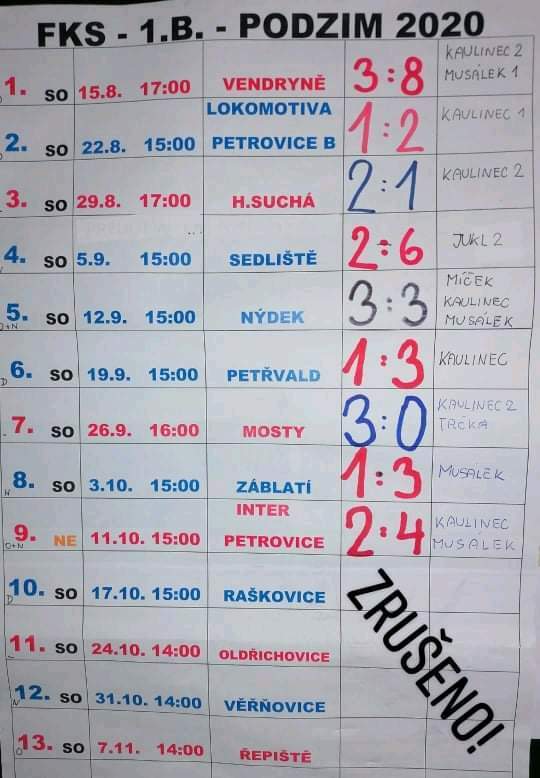 FKS - 1.B. - PODZIM 2020
1. SO 15.8. 17:00 VENDRYNĚ 3:8 KAULINEC 2
MUSÁLEK 1
2. SO 22.8. 15:00 LOKOMOTIVA
PETROVICE B 1:2 KAULINEC 1
3. SO 29.8. 17:00 H.SUCHÁ 2:1 KAULINEC 2
4. SO 5.9. 15:00 SEDLIŠTĚ 2:6 JUKL 2
5. SO 12.9. 15:00 NÝDEK 3:3 MÍČEK
KAULINEC
MUSÁLEK
O+N
6. SO 19.9. 15:00 PETŘVALD 1:3 KAULINEC
D
7. SO 26.9. 16:00 MOSTY 3:0 KAULINEC 2
TRČKA
8. SO 3.10. 15:00 ZÁBLATÍ 1:3 MUSALEK
N
9. NE 11.10. 15:00 INTER
PETROVICE 2:4 KAULINEC
MUSÁLEK
O+N
10. SO 17.10. 15:00 RAŠKOVICE
D
11. SO 24.10. 14:00 OLDŘICHOVICE
12. SO 31.10. 14:00 VĚŘŇOVICE
N
13. SO 7.11. 14:00 ŘEPIŠTĚ
O
ZRUŠENO!